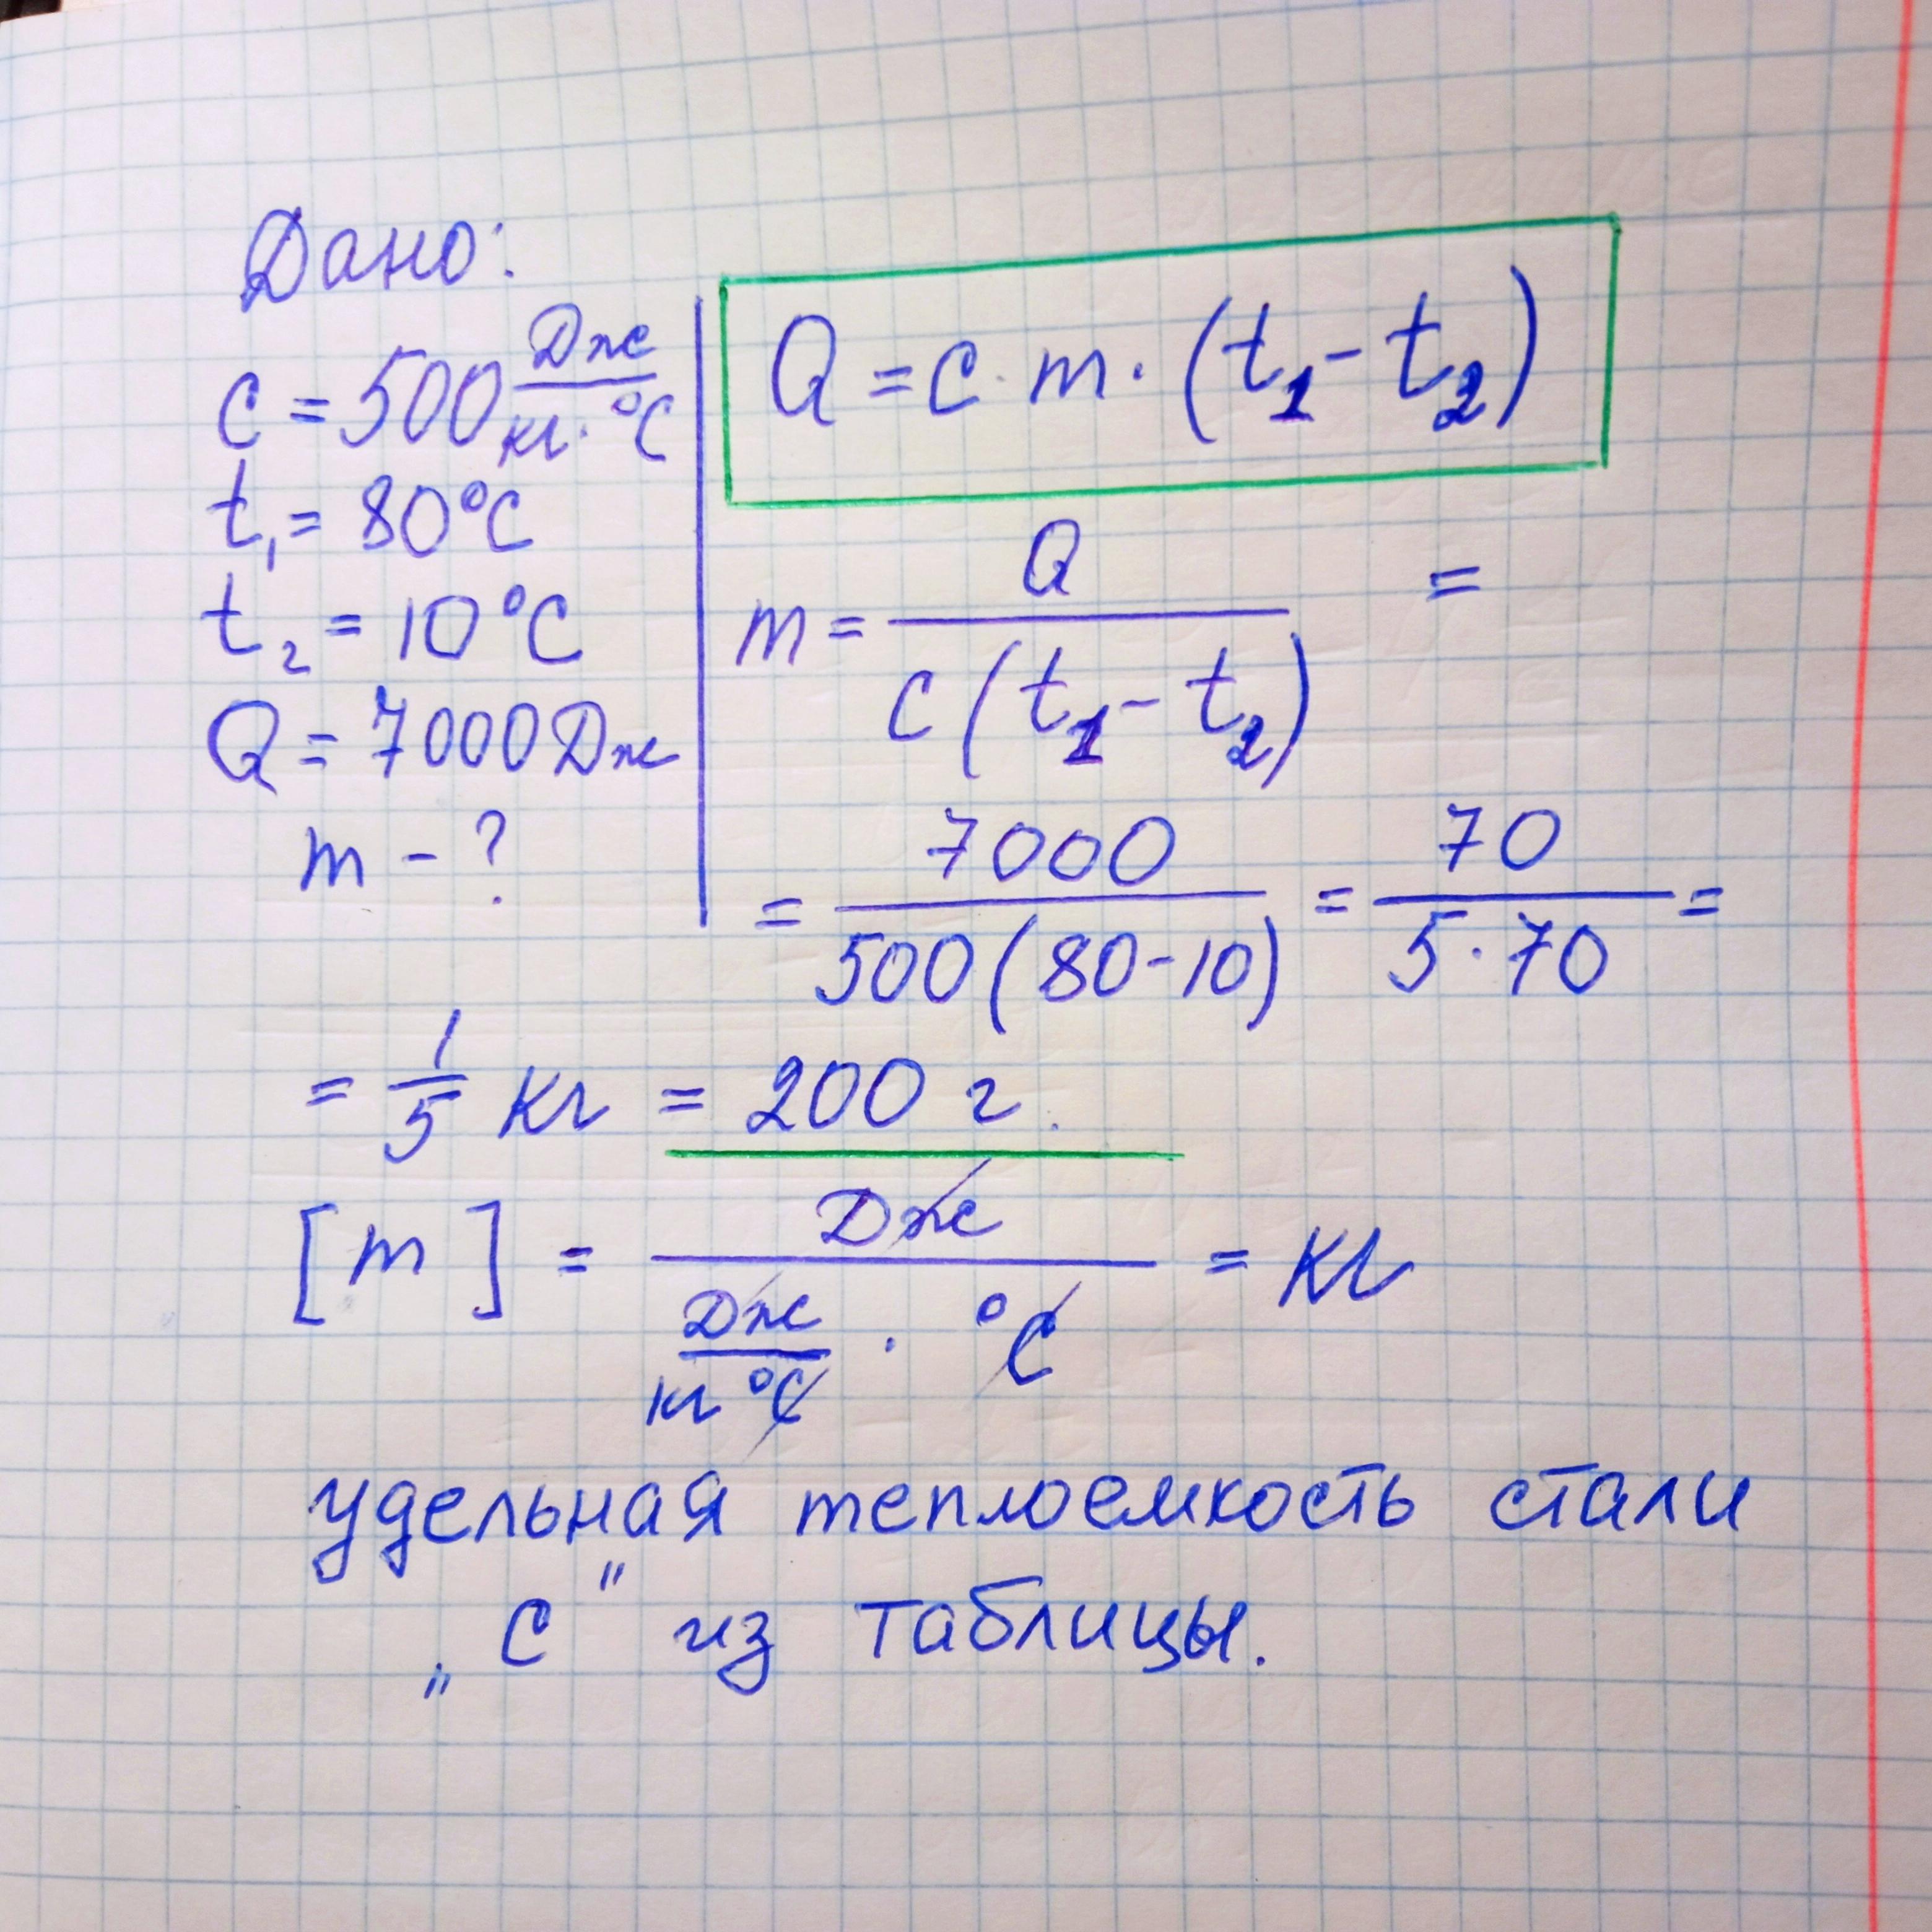 Дано:
c = 500 Дж/кг·°C
t₁ = 80°C
t₂ = 10°C
Q = 7000 Дж
m - ?
Q = c · m · (t₁ - t₂)
m = Q / c(t₁ - t₂) =
= 7000 / 500(80-10) = 70 / 5·70 =
= 1/5 кг = 200 г.
[m] = Дж / Дж/кг°C · °C = кг
удельная теплоемкость стали
„c" из таблицы.